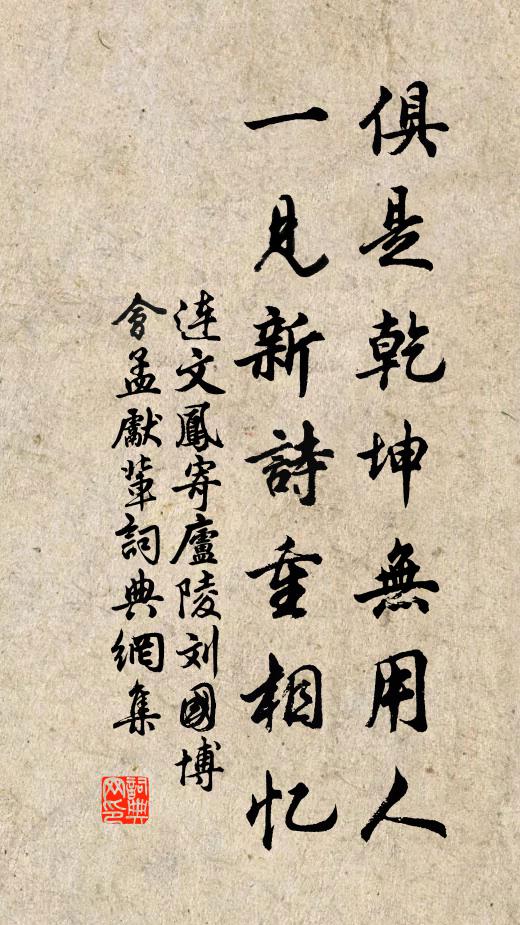 俱是乾坤無用人
一見新詩重相忆
连文鳳寄廬陵刘國博
會孟獻輩詞典網集
詞典网印